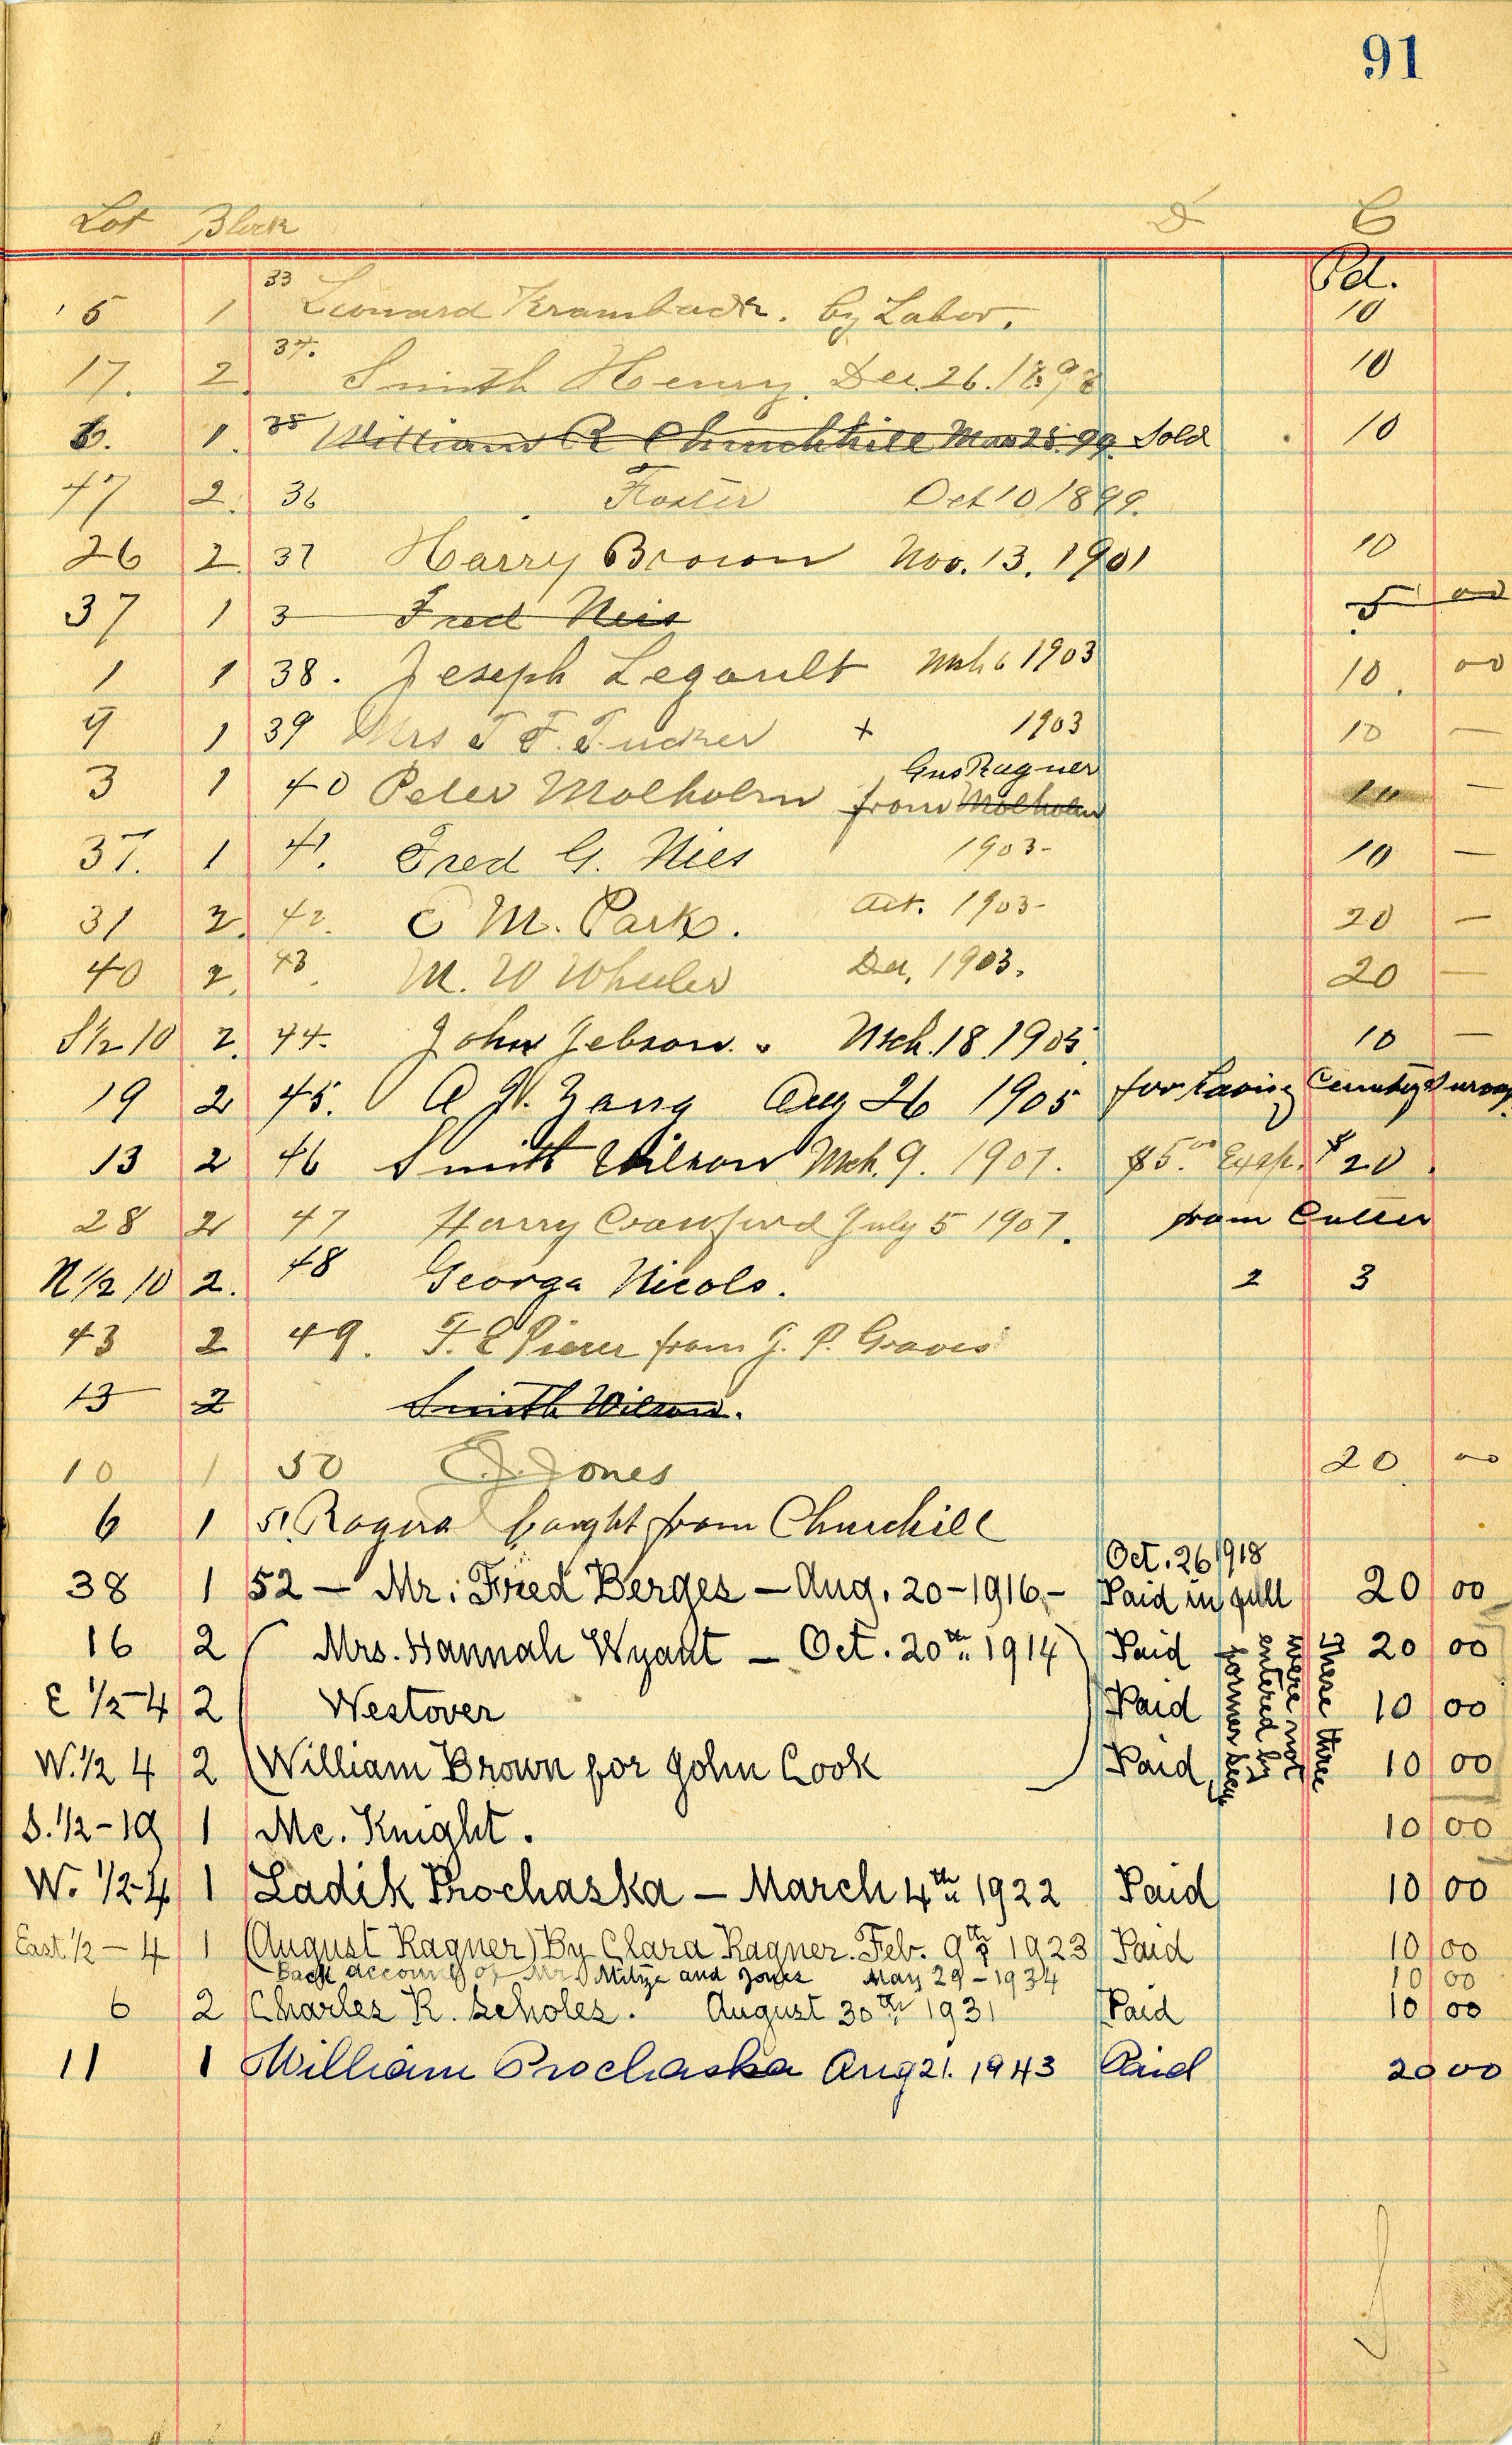 91
Lot Block D C
Pd.
5 1 33 Leonard Krambach. by Labor. 10
17. 2. 34. Smith Henry. Dec. 26. 1898 10
6. 1. 35 William R Churchhill Mar 25. 99. Sold 10
47 2. 36 Foster Oct 10 1899.
26 2. 37 Harry Brown Nov. 13. 1901 10
37 1 3 Fred Nies 5 00
1 1 38. Joseph Legault Mch 6 1903 10. 00
9 1 39 Mrs T F. Tucker + 1903 10 —
Gus Ragner
3 1 40 Peter Molholm from Molholm 10 —
37. 1 41. Fred G. Nies 1903- 10 —
31 2. 42. C M. Park. Oct. 1903- 20 —
40 2. 43. M. W Wheeler Dec. 1903. 20 —
S 1/2 10 2. 44. John Jebson. Mch. 18. 1905. 10 —
19 2 45. Aug 26 1905 for County Survey.
13 2 46 Smith Wilson Mch. 9. 1907. $5.00 Exp. $20.
28 2 47 Harry Crawford July 5 1907. from Cutler
N 1/2 10 2. 48 George Nicols. 2 3
43 2 49. F. E Pierer from J. P. Graves
13 2 Smith Wilson.
10 1 50 Jones 20 00
6 1 51. Rogers bought from Churchill
Oct. 26 1918
38 1 52 — Mr. Fred Berges — Aug. 20 - 1916 - Paid in full 20 00
16 2 ( Mrs. Hannah Wyant — Oct. 20th 1914 ) Paid 20 00
E 1/2-4 2 Westover Paid 10 00
W. 1/2 4 2 (William Brown for John Cook Paid 10 00
There three
were not
entered by
former secy.
S. 1/2-19 1 Mc. Knight. 10 00
W. 1/2-4 1 Ladik Prochaska — March 4th 1922 Paid 10 00
East 1/2 - 4 1 (August Ragner) By Clara Ragner. Feb. 9th 1923 Paid 10 00
Back account of Mr. Mitze and Jones May 29 - 1934 10 00
6 2 Charles R. Scholes. August 30th 1931 Paid 10 00
11 1 William Prochaska Aug 21. 1943 Paid 20 00